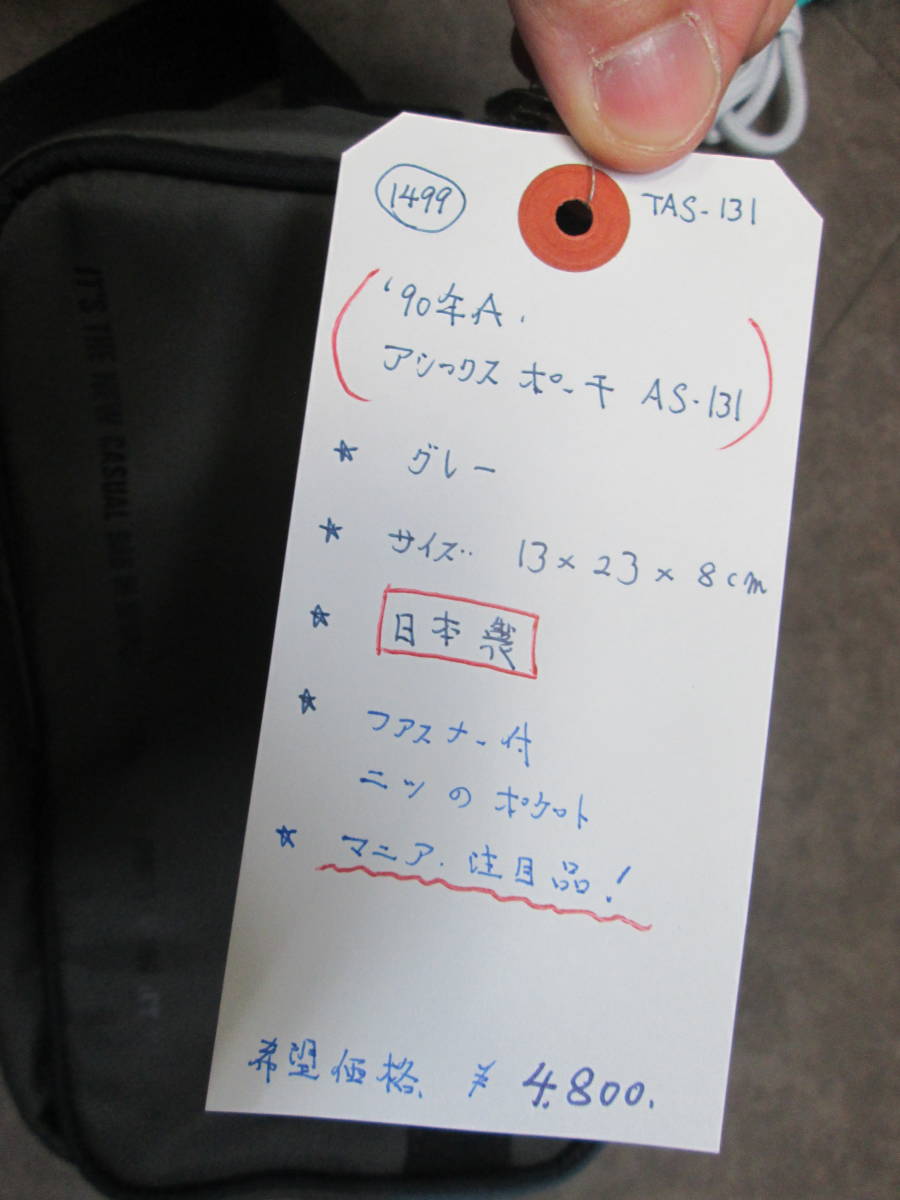 1499
TAS-131
'90年A.
アシックス ポーチ AS-131
★ グレー
★ サイズ‥ 13×23×8cm
★ 日本製
★ フアスナー付
ニツのポケット
★ マニア.注目品!
希望価格 ¥4.800.
IT'S THE NEW CASUAL BAG